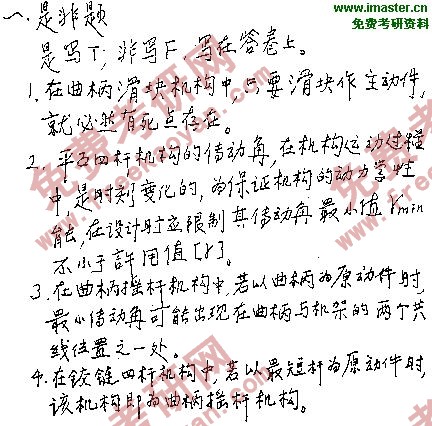 www.imaster.cn
免费考研资料
一、是非题
是写T，非写F，写在答卷上。
1. 在曲柄滑块机构中，只要滑块作主动件，
就必然有死点存在。
2. 平面四杆机构的传动角，在机构运动过程
中，是时刻变化的，为保证机构的动力学性
能，在设计时应限制其传动角最小值γmin
不小于许用值[γ]。
3. 在曲柄摇杆机构中，若以曲柄为原动件时，
最小传动角可能出现在曲柄与机架的两个共
线位置之一处。
4. 在铰链四杆机构中，若以最短杆为原动件时，
该机构即为曲柄摇杆机构。